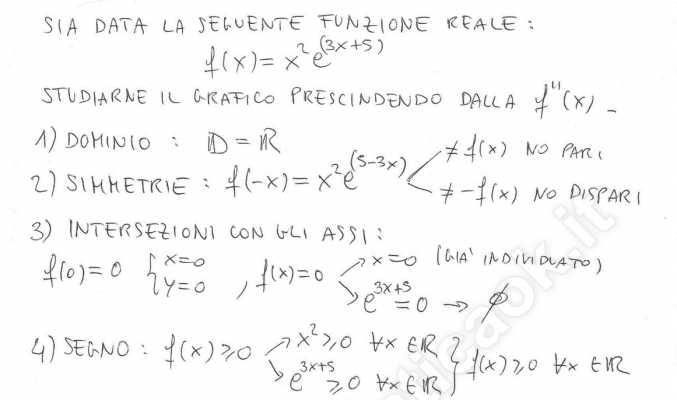 SIA DATA LA SEGUENTE FUNZIONE REALE:
f(x) = x² e^(3x+5)
STUDIARNE IL GRAFICO PRESCINDENDO DALLA f''(x) –
1) DOMINIO : D = ℝ
2) SIMMETRIE : f(-x) = x² e^(5-3x) ≠ f(x) NO PARI
≠ -f(x) NO DISPARI
3) INTERSEZIONI CON GLI ASSI:
f(0) = 0 { x=0 y=0 , f(x)=0 → x=0 (GIA' INDIVIDUATO)
→ e^(3x+5) = 0 → ∅
4) SEGNO : f(x) ≥ 0 → x² ≥ 0 ∀x ∈ ℝ
→ e^(3x+5) ≥ 0 ∀x ∈ ℝ } f(x) ≥ 0 ∀x ∈ ℝ